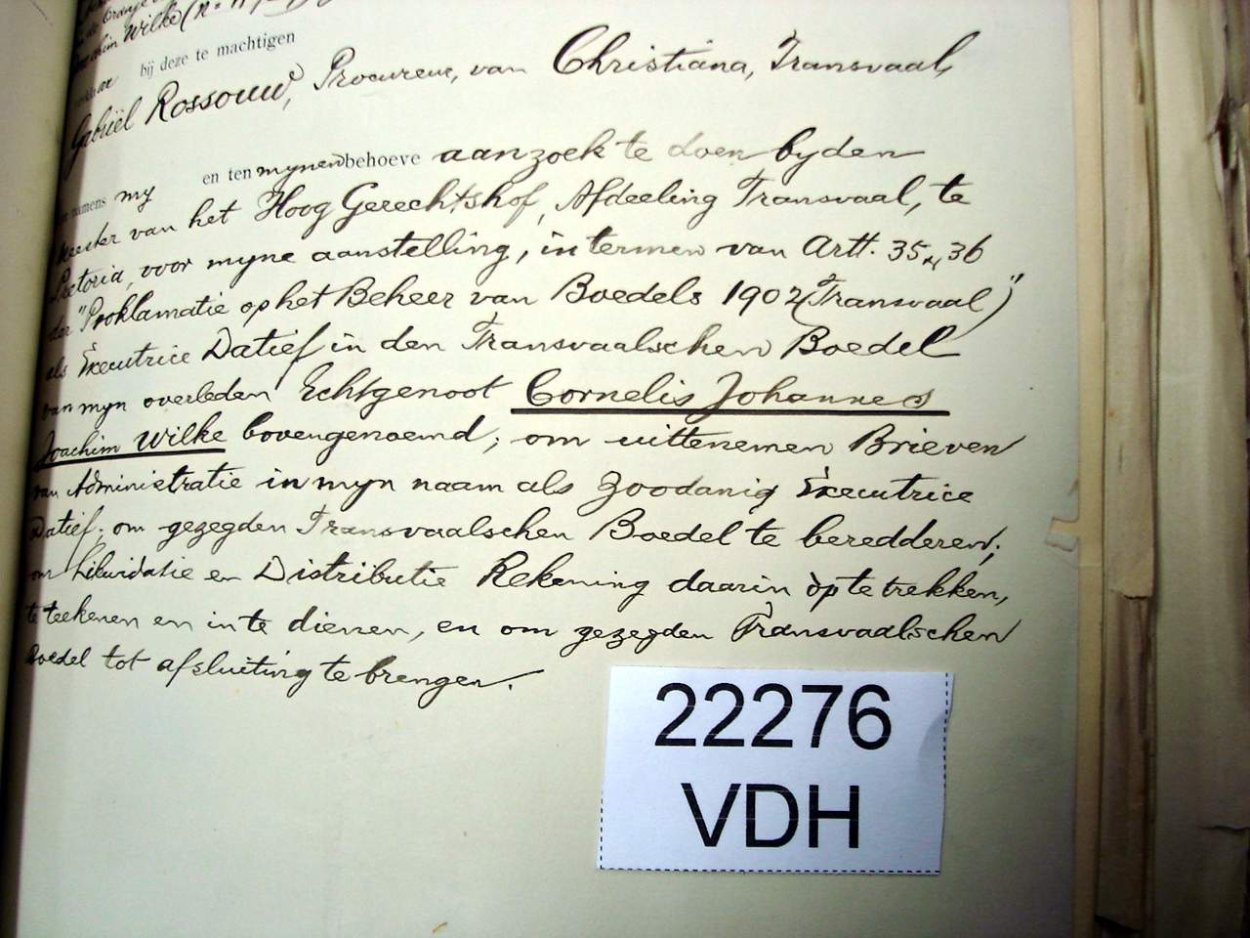 Wilke
bij deze te machtigen
Gabriël Rossouw, Procureur, van Christiana, Transvaal,
namens my en ten mynen behoeve aanzoek te doen by den
Meester van het Hoog Gerechtshof, Afdeeling Transvaal, te
Pretoria, voor myne aanstelling, in termen van Artt. 35 & 36
der "Proklamatie op het Beheer van Boedels 1902 (Transvaal)"
als Executrice Datief in den Transvaalschen Boedel
van myn overleden Echtgenoot Cornelis Johannes
Joachim Wilke bovengenoemd; om uittenemen Brieven
van Administratie in myn naam als zoodanig Executrice
Datief; om gezegden Transvaalschen Boedel te beredderen;
om Likwidatie en Distributie Rekening daarin op te trekken,
te teekenen en in te dienen, en om gezegden Transvaalschen
Boedel tot afsluiting te brengen.
22276
VDH